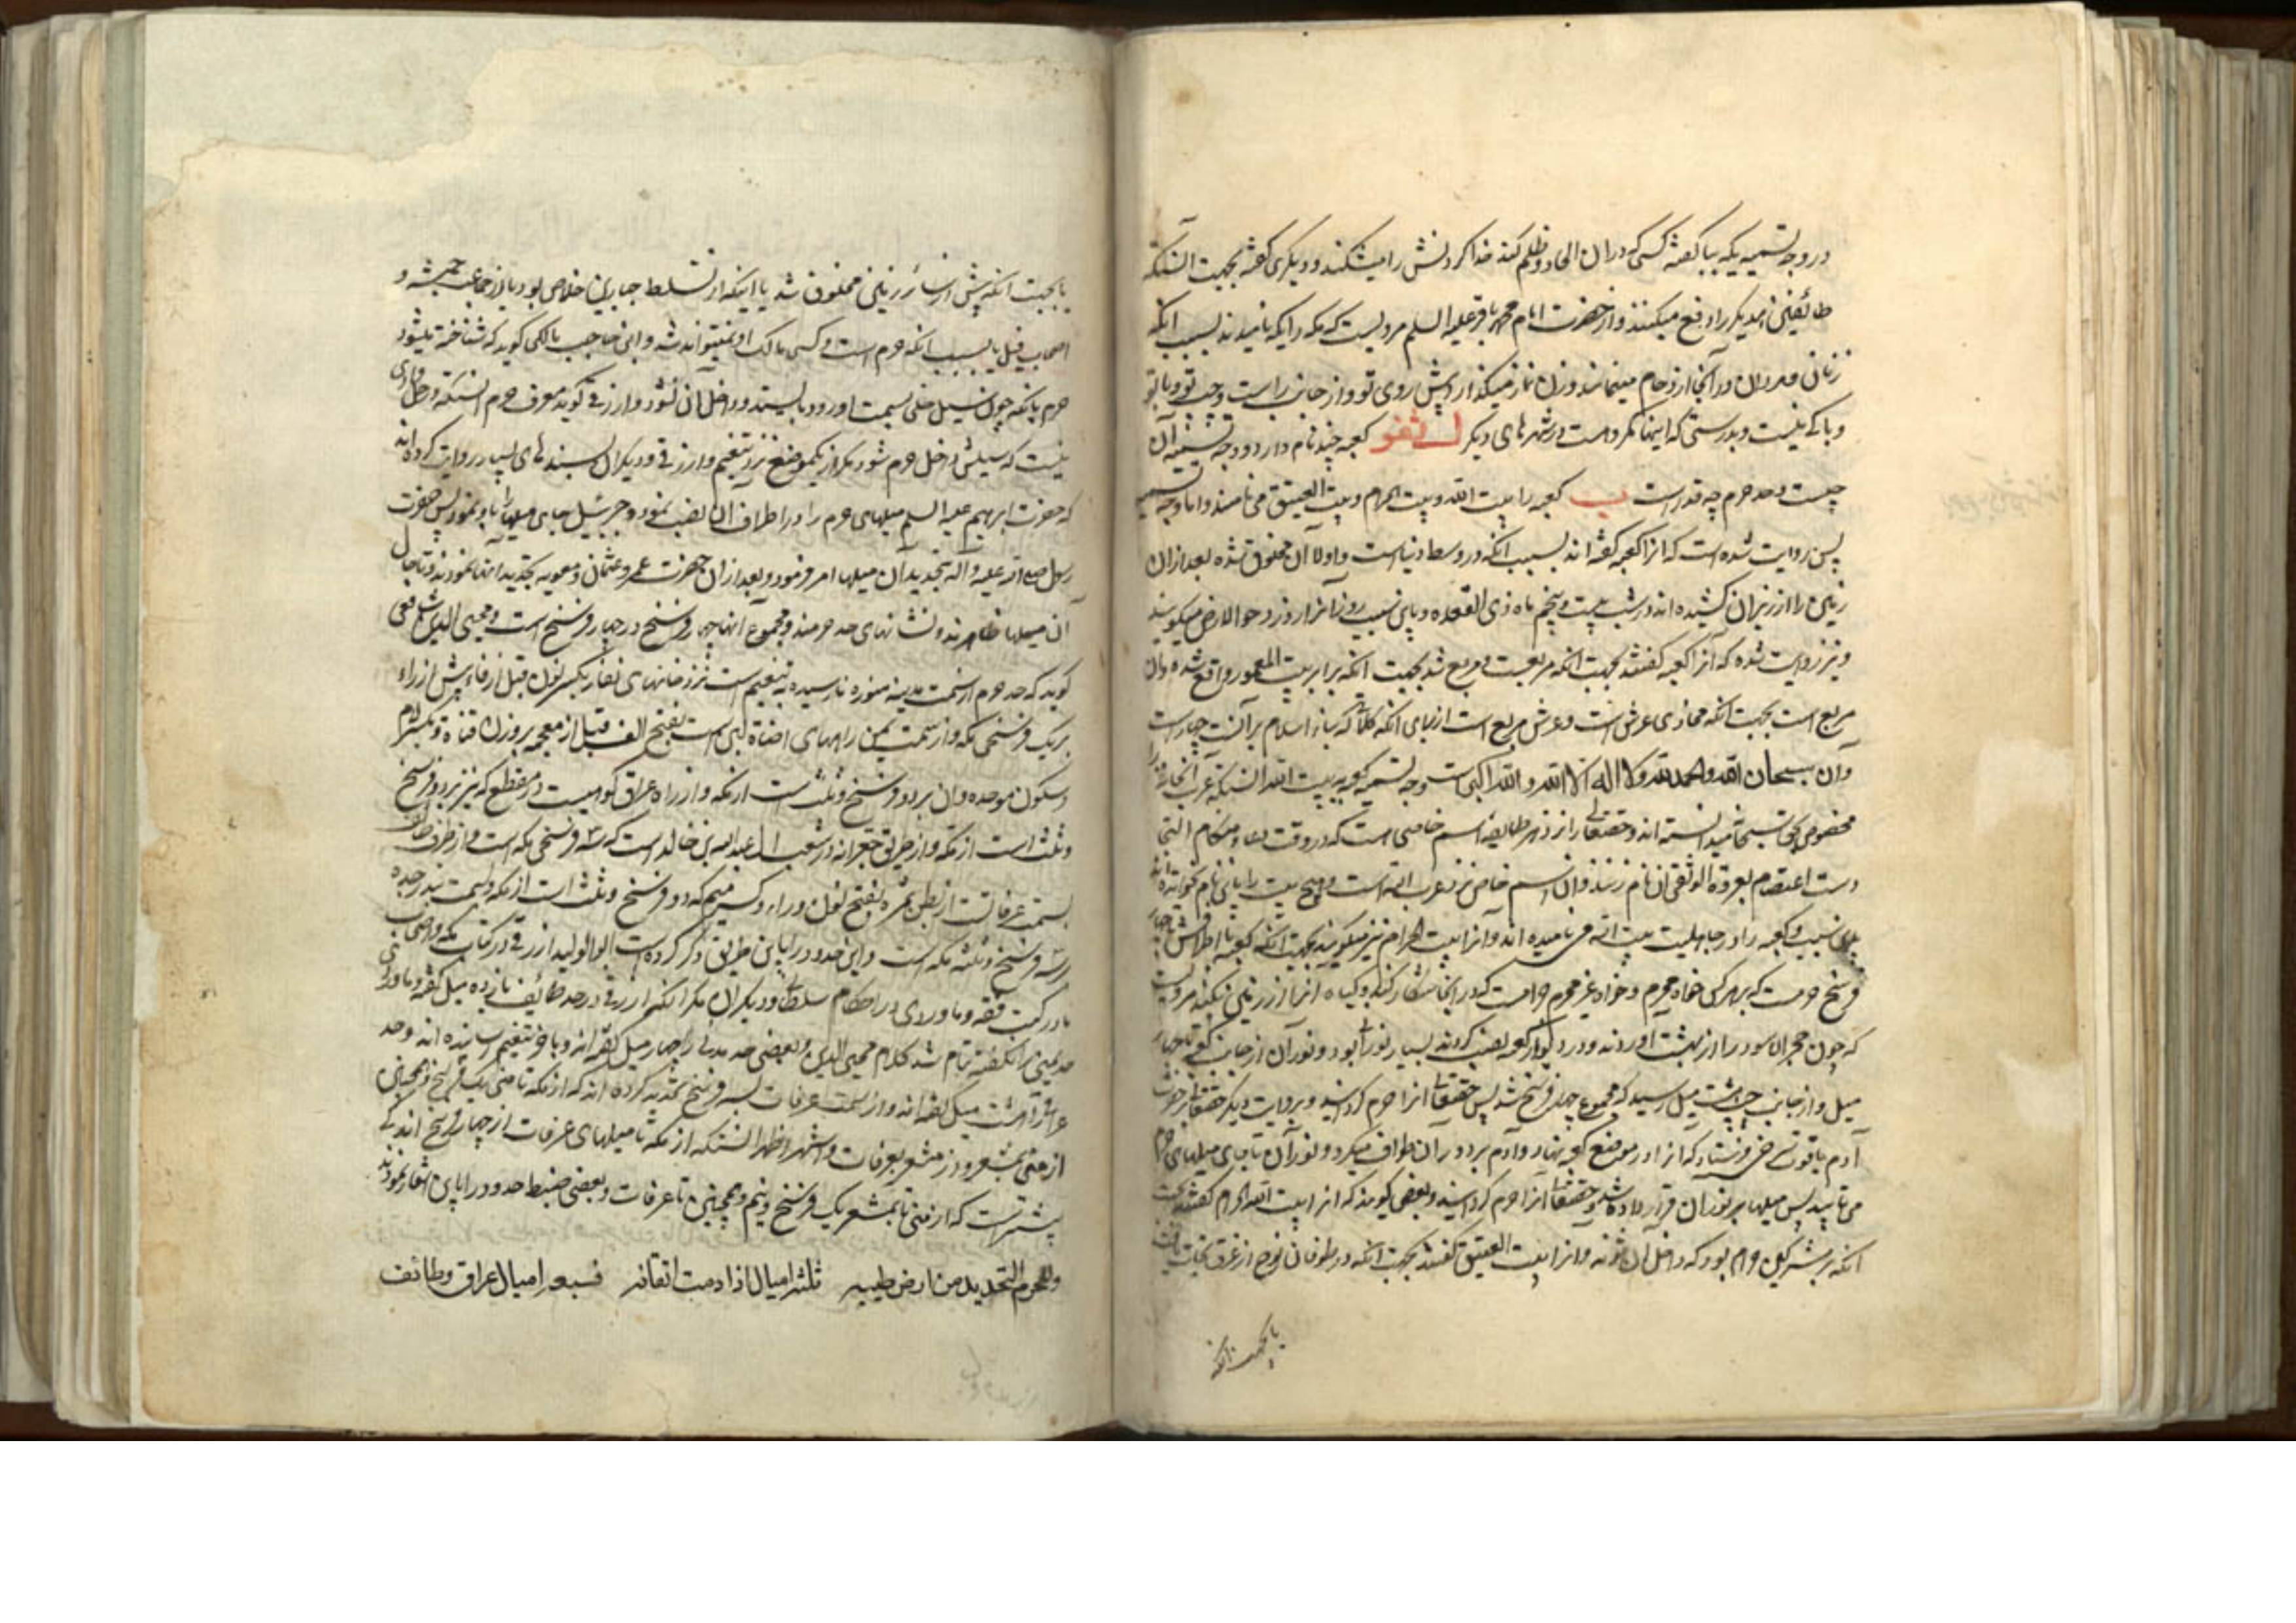 در وجه تسمیه بکه ببا گفته کسی که در آن الحاد و ظلم کند خدا گردنش را میشکند و دیگری گفته بجهت آنستکه
طائفین همدیگر را دفع میکنند و از حضرت امام محمد باقر علیه السلم مرویست که مکه را بکه نامیدند بسبب آنکه
زنان و مردان در آنجا ازدحام مینمایند و زن نماز میگذارد پیش روی تو و از جانب راست و چپ تو و با تو
و باکی نیست و بدرستی که اینها مکروهست در شهرهای دیگر کعبه چند نام دارد و وجه تسمیه آن
چیست و حد حرم چه قدر است کعبه را بیت الله و بیت الحرام و بیت العتیق می نامند و اما وجه تسمیه
پس روایت شده است که آنرا کعبه گفته اند بسبب آنکه در وسط دنیاست و اولا آن مخلوق شده بعد از آن
زمین را از زیر آن کشیده اند در شب بیست و پنجم ماه ذی القعده و باین سبب روز آنرا روز دحو الارض میگویند
و نیز روایت شده که آنرا کعبه گفتند بجهت آنکه مربعست و مربع شد بجهت آنکه برابر بیت المعمور واقع شده و آن
مربع است بجهت آنکه محاذی عرش است و عرش مربع است از برای آنکه کلماتی که بناء اسلام بر آنست چهار است
و آن سبحان الله والحمد لله ولا اله الا الله والله اکبر است وجه تسمیه کعبه به بیت الله آنستکه عرب
مخصوص حق سبحانه میدانسته اند و حقتعالی را نزد هر طایفه اسم خاصی است که در وقت دعا و هنگام التجا
دست اعتصام بعروة الوثقی آن نام زنند و آن اسم خاص نزد عرب الله است و هیچ بیت را باین نام نخوانده اند
باین سبب کعبه را در جاهلیت بیت الله می نامیده اند و آنرا بیت الحرام نیز میگویند بجهت آنکه کعبه با اطرافش تا چهار
فرسخ حرمست که بر هر کس خواه محرم و خواه غیر محرم حرامست که در آنجا شکار کند و گیاه آنرا از زمین بکند مرویست
که چون حجر الاسود را از بهشت آوردند و در دیوار کعبه نصب کردند بسیار نورانی بود و نور آن از جانب کعبه تا چهار
میل و از جانب چپ هشت میل رسید که مجموع چهار فرسخ شد پس حقتعالی آنرا حرم گردانید و بروایت دیگر حقتعالی بر حضرت
آدم یاقوت سرخی فرستاد که آنرا در موضع کعبه نهاد و آدم بر دور آن طواف میکرد و نور آن تا جای میلهای حرم
می تابید پس میلها بر نور آن قرار داده شد و حقتعالی آنرا حرم گردانید و بعضی گویند که آنرا بیت الله الحرام گفتند بجهت
آنکه بر مشرکین حرام بود که داخل آن شوند و آنرا بیت العتیق گفتند بجهت آنکه در طوفان نوح از غرق نجات یافت
یا بجهت آنکه
یا بجهت آنکه پیش از سائر زمین مخلوق شد یا اینکه از تسلط جباران خلاص بود یا از جماعت حبشه و
اصحاب فیل یا بسبب آنکه حرم است و کسی مالک او نمیتواند شد و ابن حاجب مالکی گوید که شناخته میشود
حرم بآنکه چون سیل حلی بسمت او رود بایستد و داخل آن نشود و ازرقی گوید معرف حرم آنستکه در حل وادی
نیست که سیلش داخل حرم شود مگر از یکموضع نزد تنعیم و ازرقی و دیگران بسندهای بسیار روایت کرده اند
که حضرت ابراهیم علیه السلم میلهای حرم را در اطراف آن نصب نمود و جبرئیل جای میلها را باو نمود پس حضرت
رسول صلی الله علیه و آله بتجدید آن میلها امر فرمود و بعد از آن حضرت عمر و عثمان و معویه تجدید آنها نمودند و تا حال
آن میلها ظاهرند و نشانهای حد حرمند و مجموع آنها چهار فرسخ در چهار فرسخ است و محیی الدین شافعی
گوید که حد حرم از سمت مدینه منوره نارسیده به تنعیم است نزد خانهای نفار بکسر نون قبل از فاء پیش از راء
بر یک فرسخی مکه و از سمت یمن راههای اضاة لبن است بفتح الف قبل از معجمه بر وزن قناة و بکسر لام
و سکون موحده و آن بر دو فرسخ و ثلث است از مکه و از راه عراق کوهیست در مقطع که نیز بر دو فرسخ
و ثلث است از مکه و از طریق جعرانه در شعب آل عبدالله بن خالد است که سه فرسخی مکه است و از طرف طائف
بسمت عرفاتست از بطن نمره بفتح نون و راء و کسر میم که دو فرسخ و ثلث است از مکه و بسمت بندر جده
سه فرسخ و ثلثه مکه است و این حدود را باین طریق ذکر کرده است ابوالولید ازرقی در کتاب مکه و اصحاب
ما در کتب فقه و ماوردی در احکام سلطانی و دیگران مگر آنکه ازرقی در حد طائف یازده میل گفته و ماوردی
حد یمنی را نگفته تمام شد کلام محیی الدین و بعضی حد مدنی را چهار میل گفته اند و باخر تنعیم رسانده اند و حد
عراق را هشت میل گفته اند و از سمت عرفات بسه فرسخ تحدید کرده اند که از مکه تا منی یک فرسخ و همچنین
از منی بمشعر و از مشعر بعرفات و اشهر و اظهر آنستکه از مکه تا میلهای عرفات از چهار فرسخ اندکی
بیشتر است که از منی تا بمشعر یک فرسخ و نیم و همچنین تا عرفات و بعضی ضبط حدود را باین اشعار نموده اند
وللحرم التحدید من ارض طیبه ثلثه امیال اذا رمت اتقانه فسبعه امیال عراق وطائف